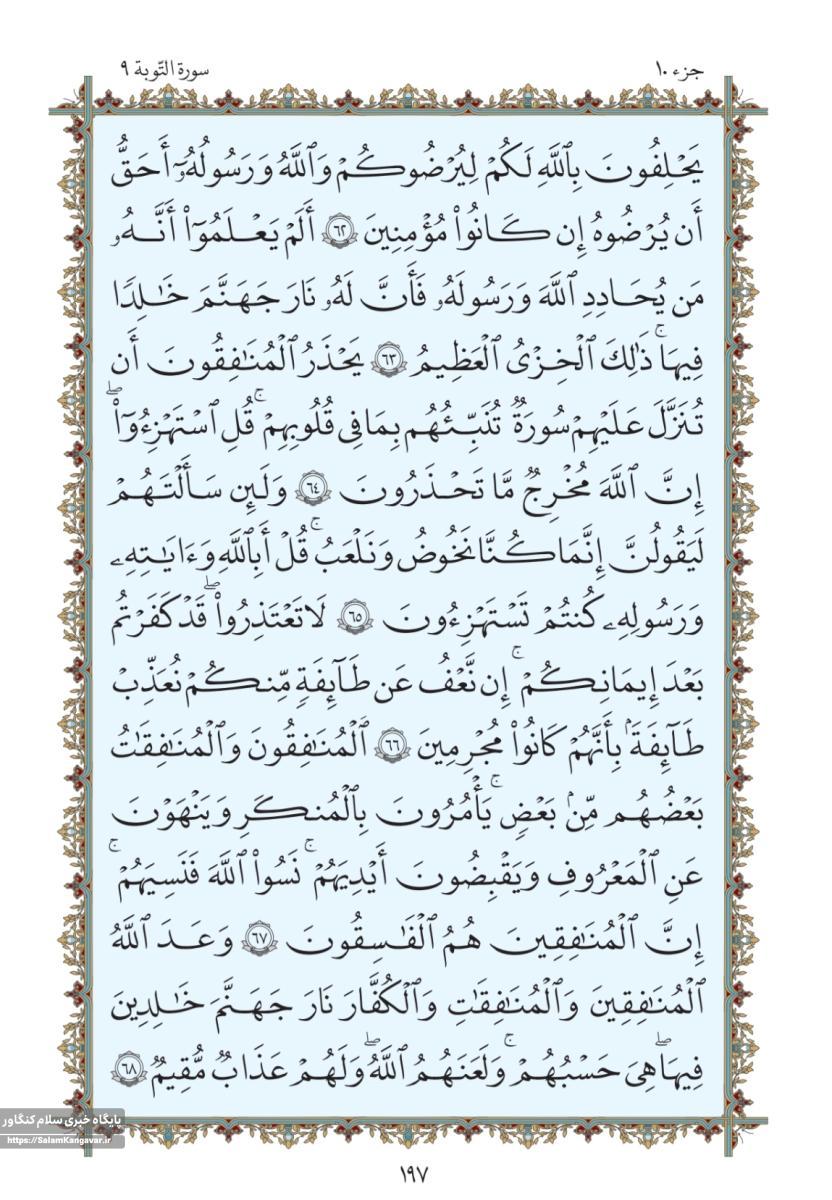 جزء ۱۰
سورة التّوبة ۹
يَحْلِفُونَ بِٱللَّهِ لَكُمْ لِيُرْضُوكُمْ وَٱللَّهُ وَرَسُولُهُۥٓ أَحَقُّ
أَن يُرْضُوهُ إِن كَانُوا۟ مُؤْمِنِينَ ٦٢ أَلَمْ يَعْلَمُوٓا۟ أَنَّهُۥ
مَن يُحَادِدِ ٱللَّهَ وَرَسُولَهُۥ فَأَنَّ لَهُۥ نَارَ جَهَنَّمَ خَٰلِدًا
فِيهَا ۚ ذَٰلِكَ ٱلْخِزْىُ ٱلْعَظِيمُ ٦٣ يَحْذَرُ ٱلْمُنَٰفِقُونَ أَن
تُنَزَّلَ عَلَيْهِمْ سُورَةٌ تُنَبِّئُهُم بِمَا فِى قُلُوبِهِمْ ۚ قُلِ ٱسْتَهْزِءُوٓا۟ ۖ
إِنَّ ٱللَّهَ مُخْرِجٌ مَّا تَحْذَرُونَ ٦٤ وَلَئِن سَأَلْتَهُمْ
لَيَقُولُنَّ إِنَّمَا كُنَّا نَخُوضُ وَنَلْعَبُ ۚ قُلْ أَبِٱللَّهِ وَءَايَٰتِهِۦ
وَرَسُولِهِۦ كُنتُمْ تَسْتَهْزِءُونَ ٦٥ لَا تَعْتَذِرُوا۟ ۖ قَدْ كَفَرْتُم
بَعْدَ إِيمَانِكُمْ ۚ إِن نَّعْفُ عَن طَآئِفَةٍ مِّنكُمْ نُعَذِّبْ
طَآئِفَةًۢ بِأَنَّهُمْ كَانُوا۟ مُجْرِمِينَ ٦٦ ٱلْمُنَٰفِقُونَ وَٱلْمُنَٰفِقَٰتُ
بَعْضُهُم مِّنۢ بَعْضٍ ۚ يَأْمُرُونَ بِٱلْمُنكَرِ وَيَنْهَوْنَ
عَنِ ٱلْمَعْرُوفِ وَيَقْبِضُونَ أَيْدِيَهُمْ ۚ نَسُوا۟ ٱللَّهَ فَنَسِيَهُمْ ۚ
إِنَّ ٱلْمُنَٰفِقِينَ هُمُ ٱلْفَٰسِقُونَ ٦٧ وَعَدَ ٱللَّهُ
ٱلْمُنَٰفِقِينَ وَٱلْمُنَٰفِقَٰتِ وَٱلْكُفَّارَ نَارَ جَهَنَّمَ خَٰلِدِينَ
فِيهَا ۖ هِىَ حَسْبُهُمْ ۚ وَلَعَنَهُمُ ٱللَّهُ ۖ وَلَهُمْ عَذَابٌ مُّقِيمٌ ٦٨
پایگاه خبری سلام کنگاور
https://SalamKangavar.ir
۱۹۷